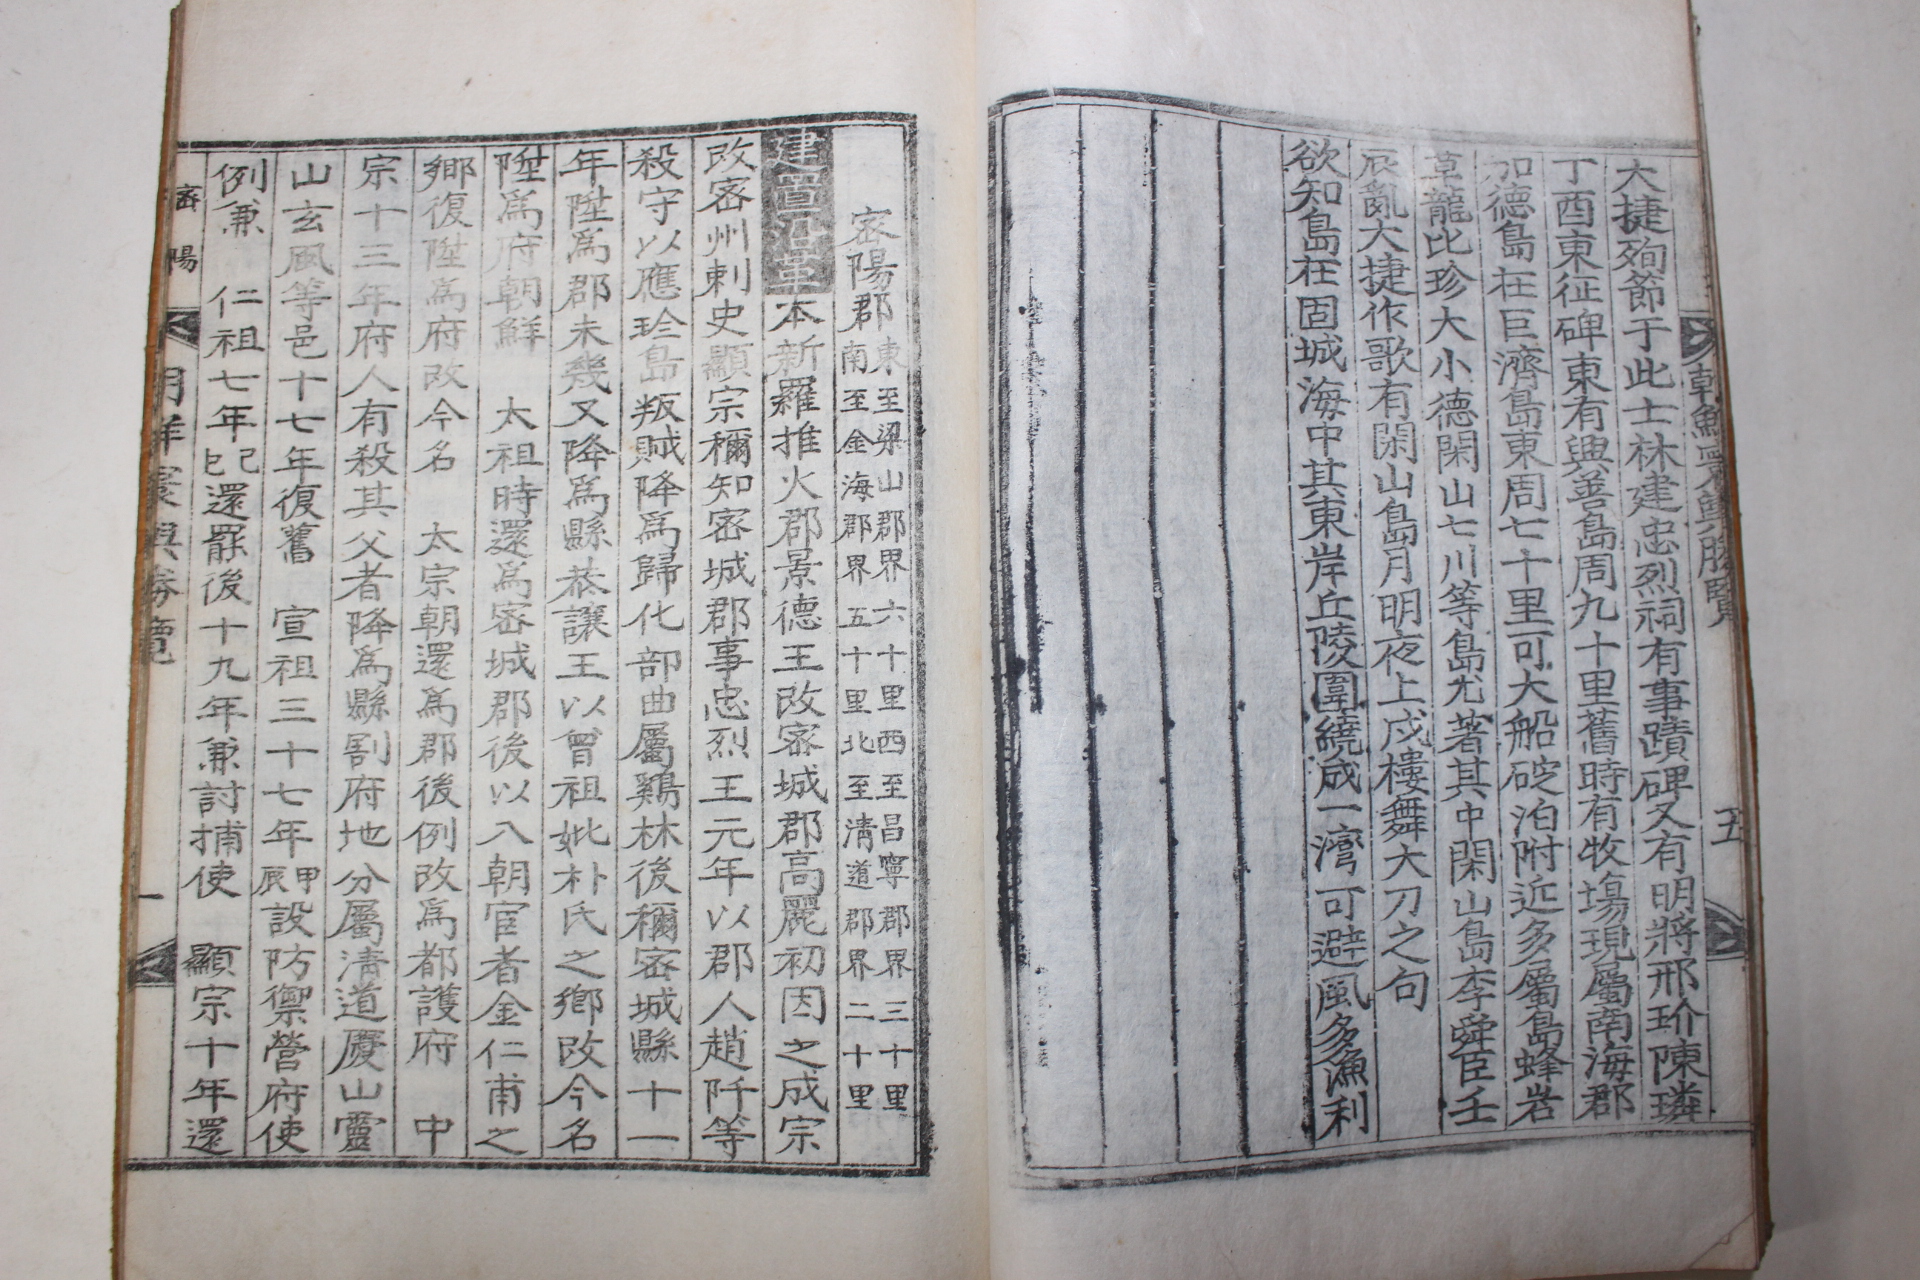 大捷殉節于此士林建忠烈祠有事蹟碑又有明將邢玠陳璘
丁酉東征碑東有興善島周九十里舊時有牧場現屬南海郡
加德島在巨濟島東周七十里可大船碇泊附近多屬島蜂岩
草龍比珍大小德閑山七川等島尤著其中閑山島李舜臣壬
辰亂大捷作歌有閑山島月明夜上戍樓舞大刀之句
欲知島在固城海中其東岸丘陵圍繞成一灣可避風多漁利
朝鮮寰輿勝覽 五
密陽郡
東至梁山郡界六十里西至昌寧郡界三十里
南至金海郡界五十里北至清道郡界二十里
建置沿革本新羅推火郡景德王改密城郡高麗初因之成宗
改密州刺史顯宗稱知密城郡事忠烈王元年以郡人趙阡等
殺守以應珍島叛賊降爲歸化部曲屬鷄林後稱密城縣十一
年陞爲郡未幾又降爲縣恭讓王以曾祖妣朴氏之鄉改今名
陞爲府朝鮮 太祖時還爲密城郡後以入朝宦者金仁甫之
鄉復陞爲府改今名 太宗朝還爲郡後例改爲都護府 中
宗十三年府人有殺其父者降爲縣割府地分屬清道慶山靈
山玄風等邑十七年復舊 宣祖三十七年甲辰設防禦營府使
例兼 仁祖七年己巳還罷後十九年兼討捕使 顯宗十年還
密陽 朝鮮寰輿勝覽 一